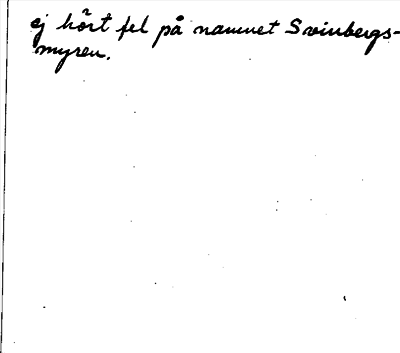 ej hört fel på namnet Svinbergs-
myren.